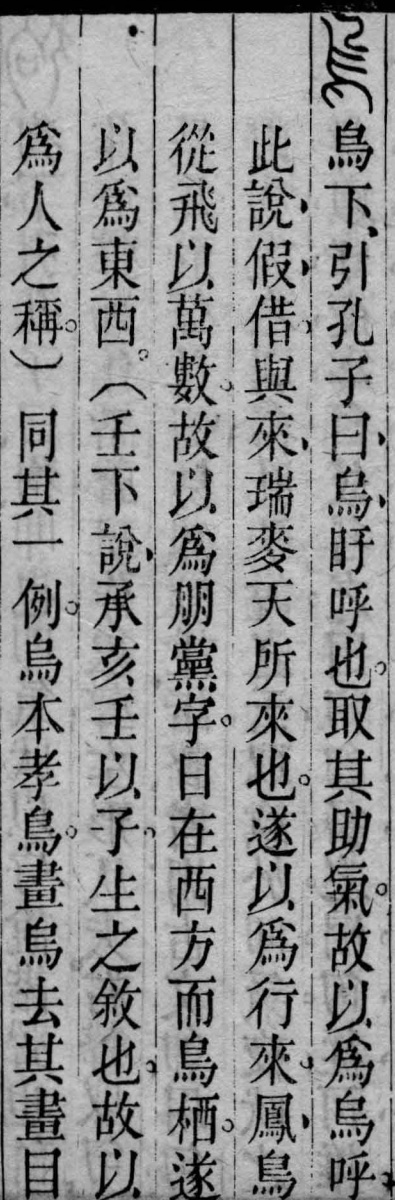 烏下引孔子曰烏盱呼也取其助氣故以爲烏呼
此說假借與來瑞麥天所來也遂以爲行來鳳鳥
從飛以萬數故以爲朋黨字日在西方而鳥栖遂
以爲東西（壬下說承亥壬以子生之敘也故以
爲人之稱）同其一例烏本孝鳥畫烏去其畫目